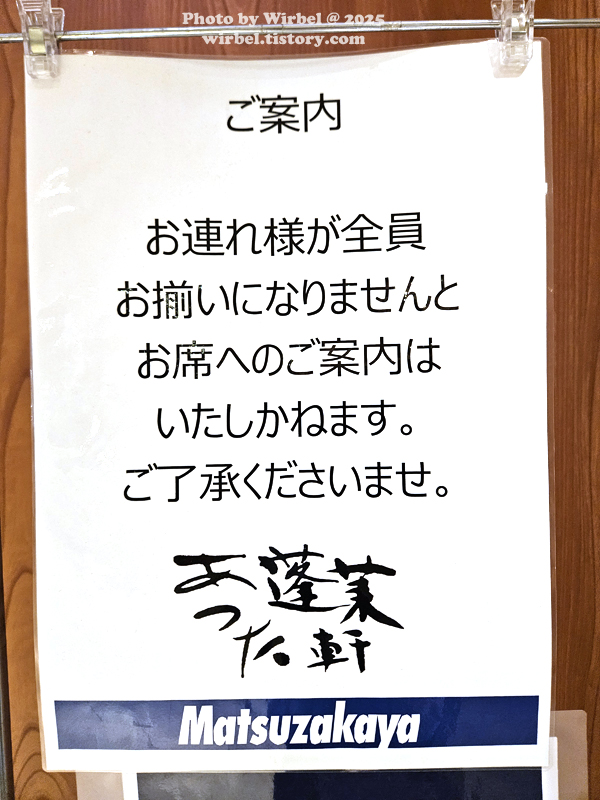 Photo by Wirbel @ 2025
wirbel.tistory.com
ご案内
お連れ様が全員
お揃いになりませんと
お席へのご案内は
いたしかねます。
ご了承くださいませ。
あつた蓬莱軒
Matsuzakaya